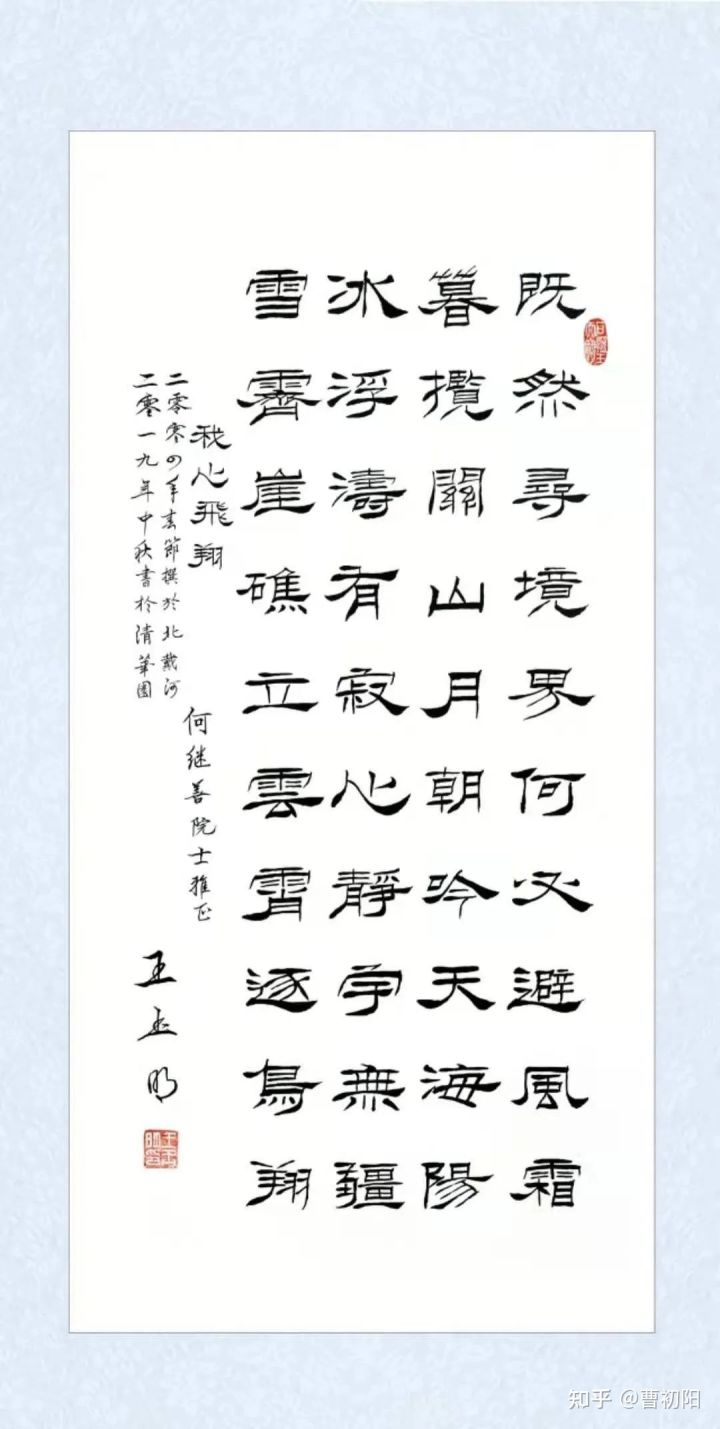 既然尋境界何必避風霜
暮攬關山月朝吟天海陽
冰浮濤有寂心靜宇無疆
雪霽崖礁立雲霄逐鳥翔
我心飛翔
何继善院士雅正
二零零四年春節撰於北戴河
二零一九年中秋書於清華園
王玉明
知乎 @曹初阳